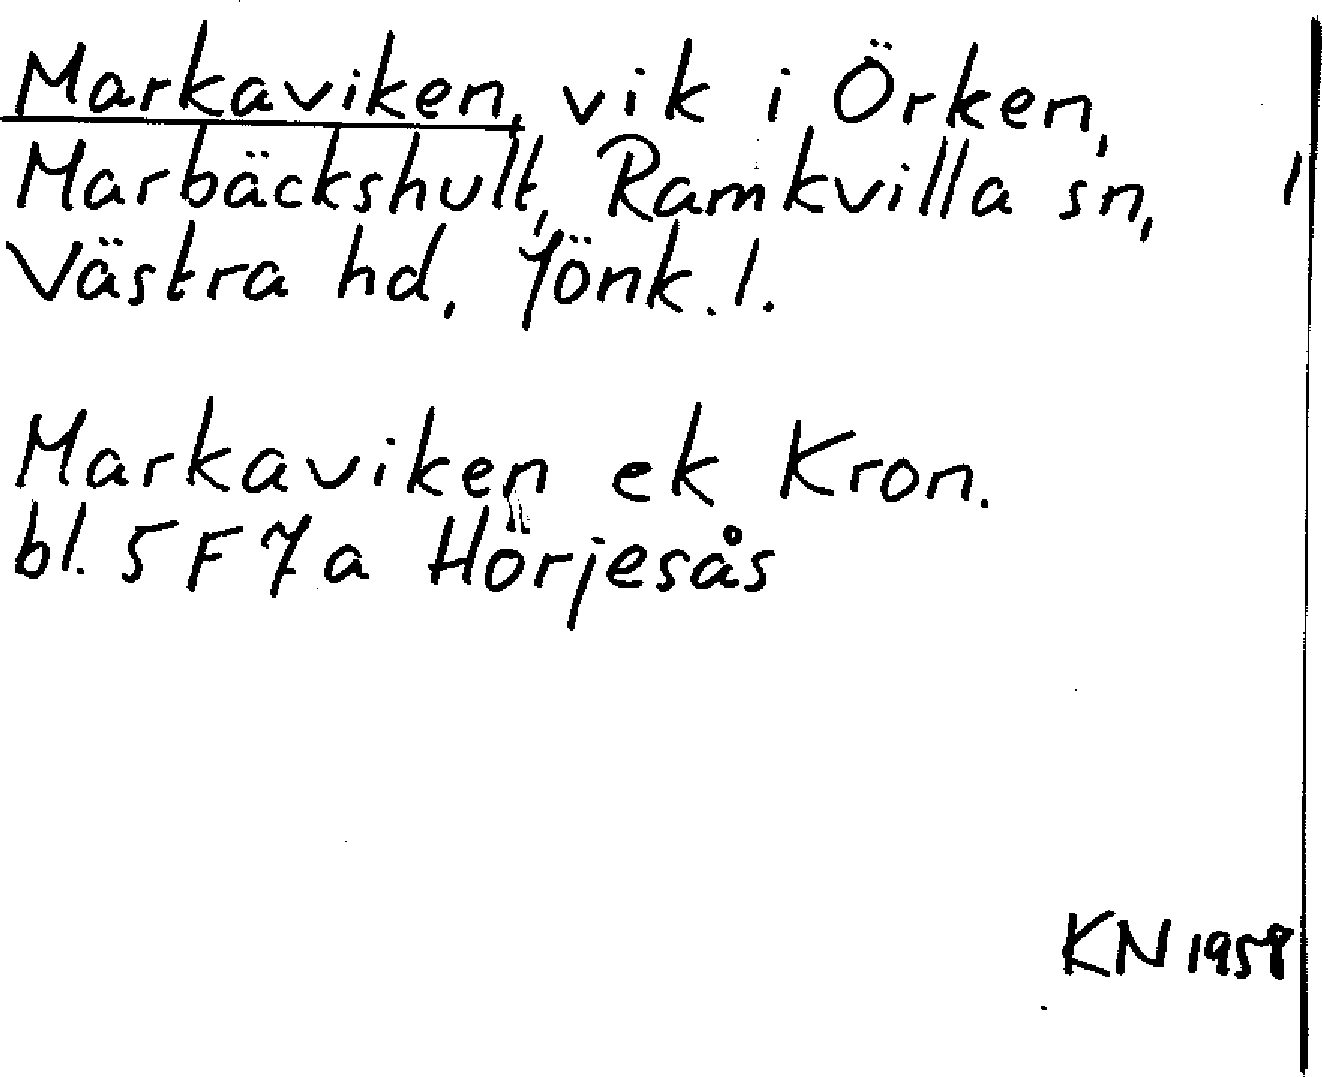 Markaviken, vik i Örken,
Marbäckshult, Ramkvilla sn,
Västra hd, Jönk. l.
Markaviken ek Kron.
bl. 5 F 7 a Hörjesås
KN 1958